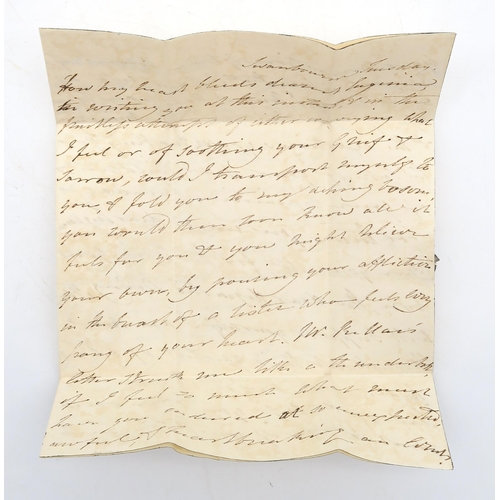 Swanbourne Tuesday
How my heart bleeds dearest Eugenia,
in writing you at this moment & in the
fruitless attempt of either conveying what
I feel or of soothing your Grief &
Sorrow, could I transport myself to
you, & fold you to my aching bosom
you would then soon know all it
feels for you & you might relieve
your own, by pouring your affliction
in the breast of a sister who feels every
pang of your heart. Mr.
letter struck me like a thunderbolt
if I feel so much what must
have you endured at so unexpected,
awful & heartbreaking an Event.